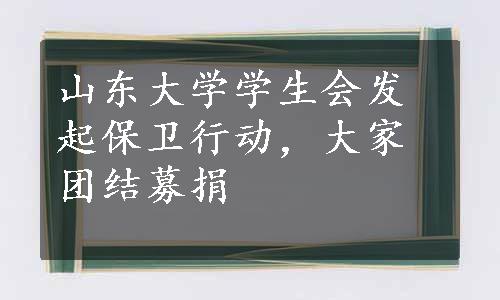 山东大学学生会发
起保卫行动，大家
团结募捐